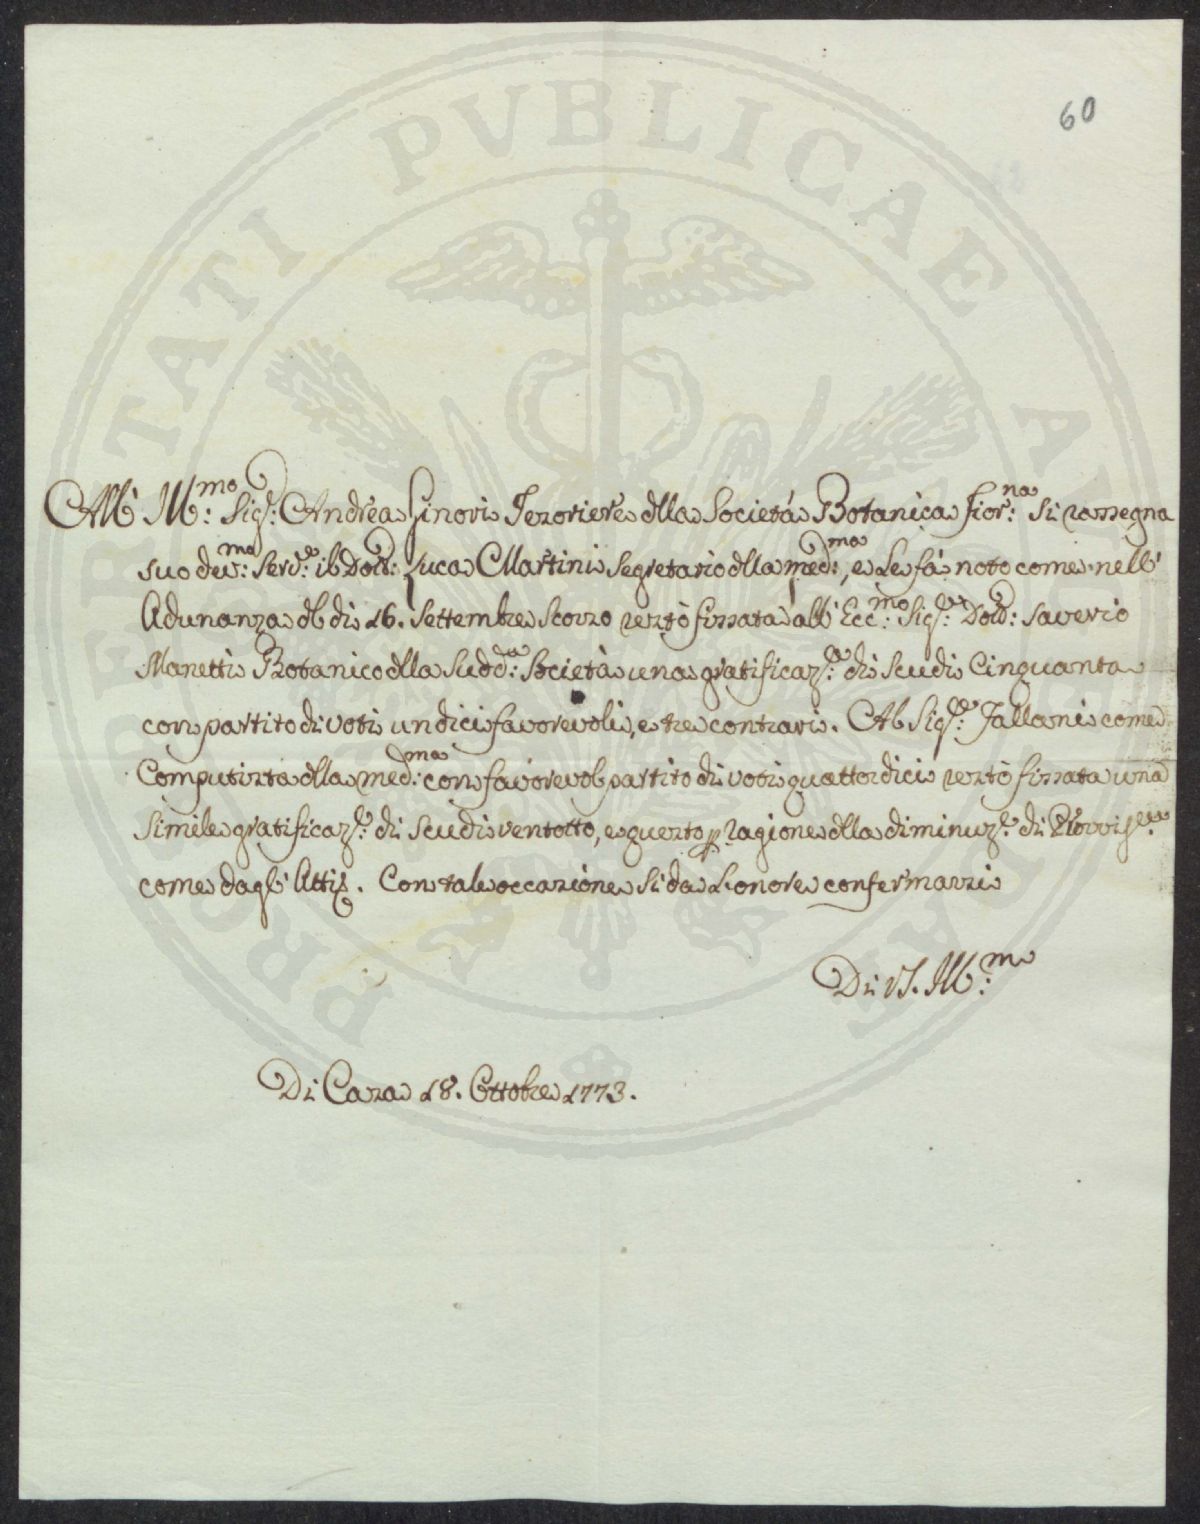 60
PROSPERITATI PVBLICAE AVGENDAE
All' Ill:mo Sig:r Andrea Ginori Tesoriere dlla Società Botanica Fior:na si rassegna
suo dev:mo Serv:e il Dott: Luca Martini Segretario dlla med:ma, e Le fà noto come nell'
Adunanza dl dì 16. Settembre scorso restò fissata all' Ecc:mo Sig:re Dott: Saverio
Manetti Botanico dlla Sudd:a Società una gratificaz:e di Scudi Cinquanta
con partito di voti undici favorevoli, e tre contrari. Al Sig:re Tallani come
Computista dlla med:ma con favorevol partito di voti quattordici restò fissata una
simile gratificaz:e di Scudi ventotto, e questo p ragione dlla diminuz:e di Provvig:e
come dagl' Atti. Con tale occasione si da L'onore confermarsi
Di VS. Ill:ma
Di Casa 18. Ottobre 1773.